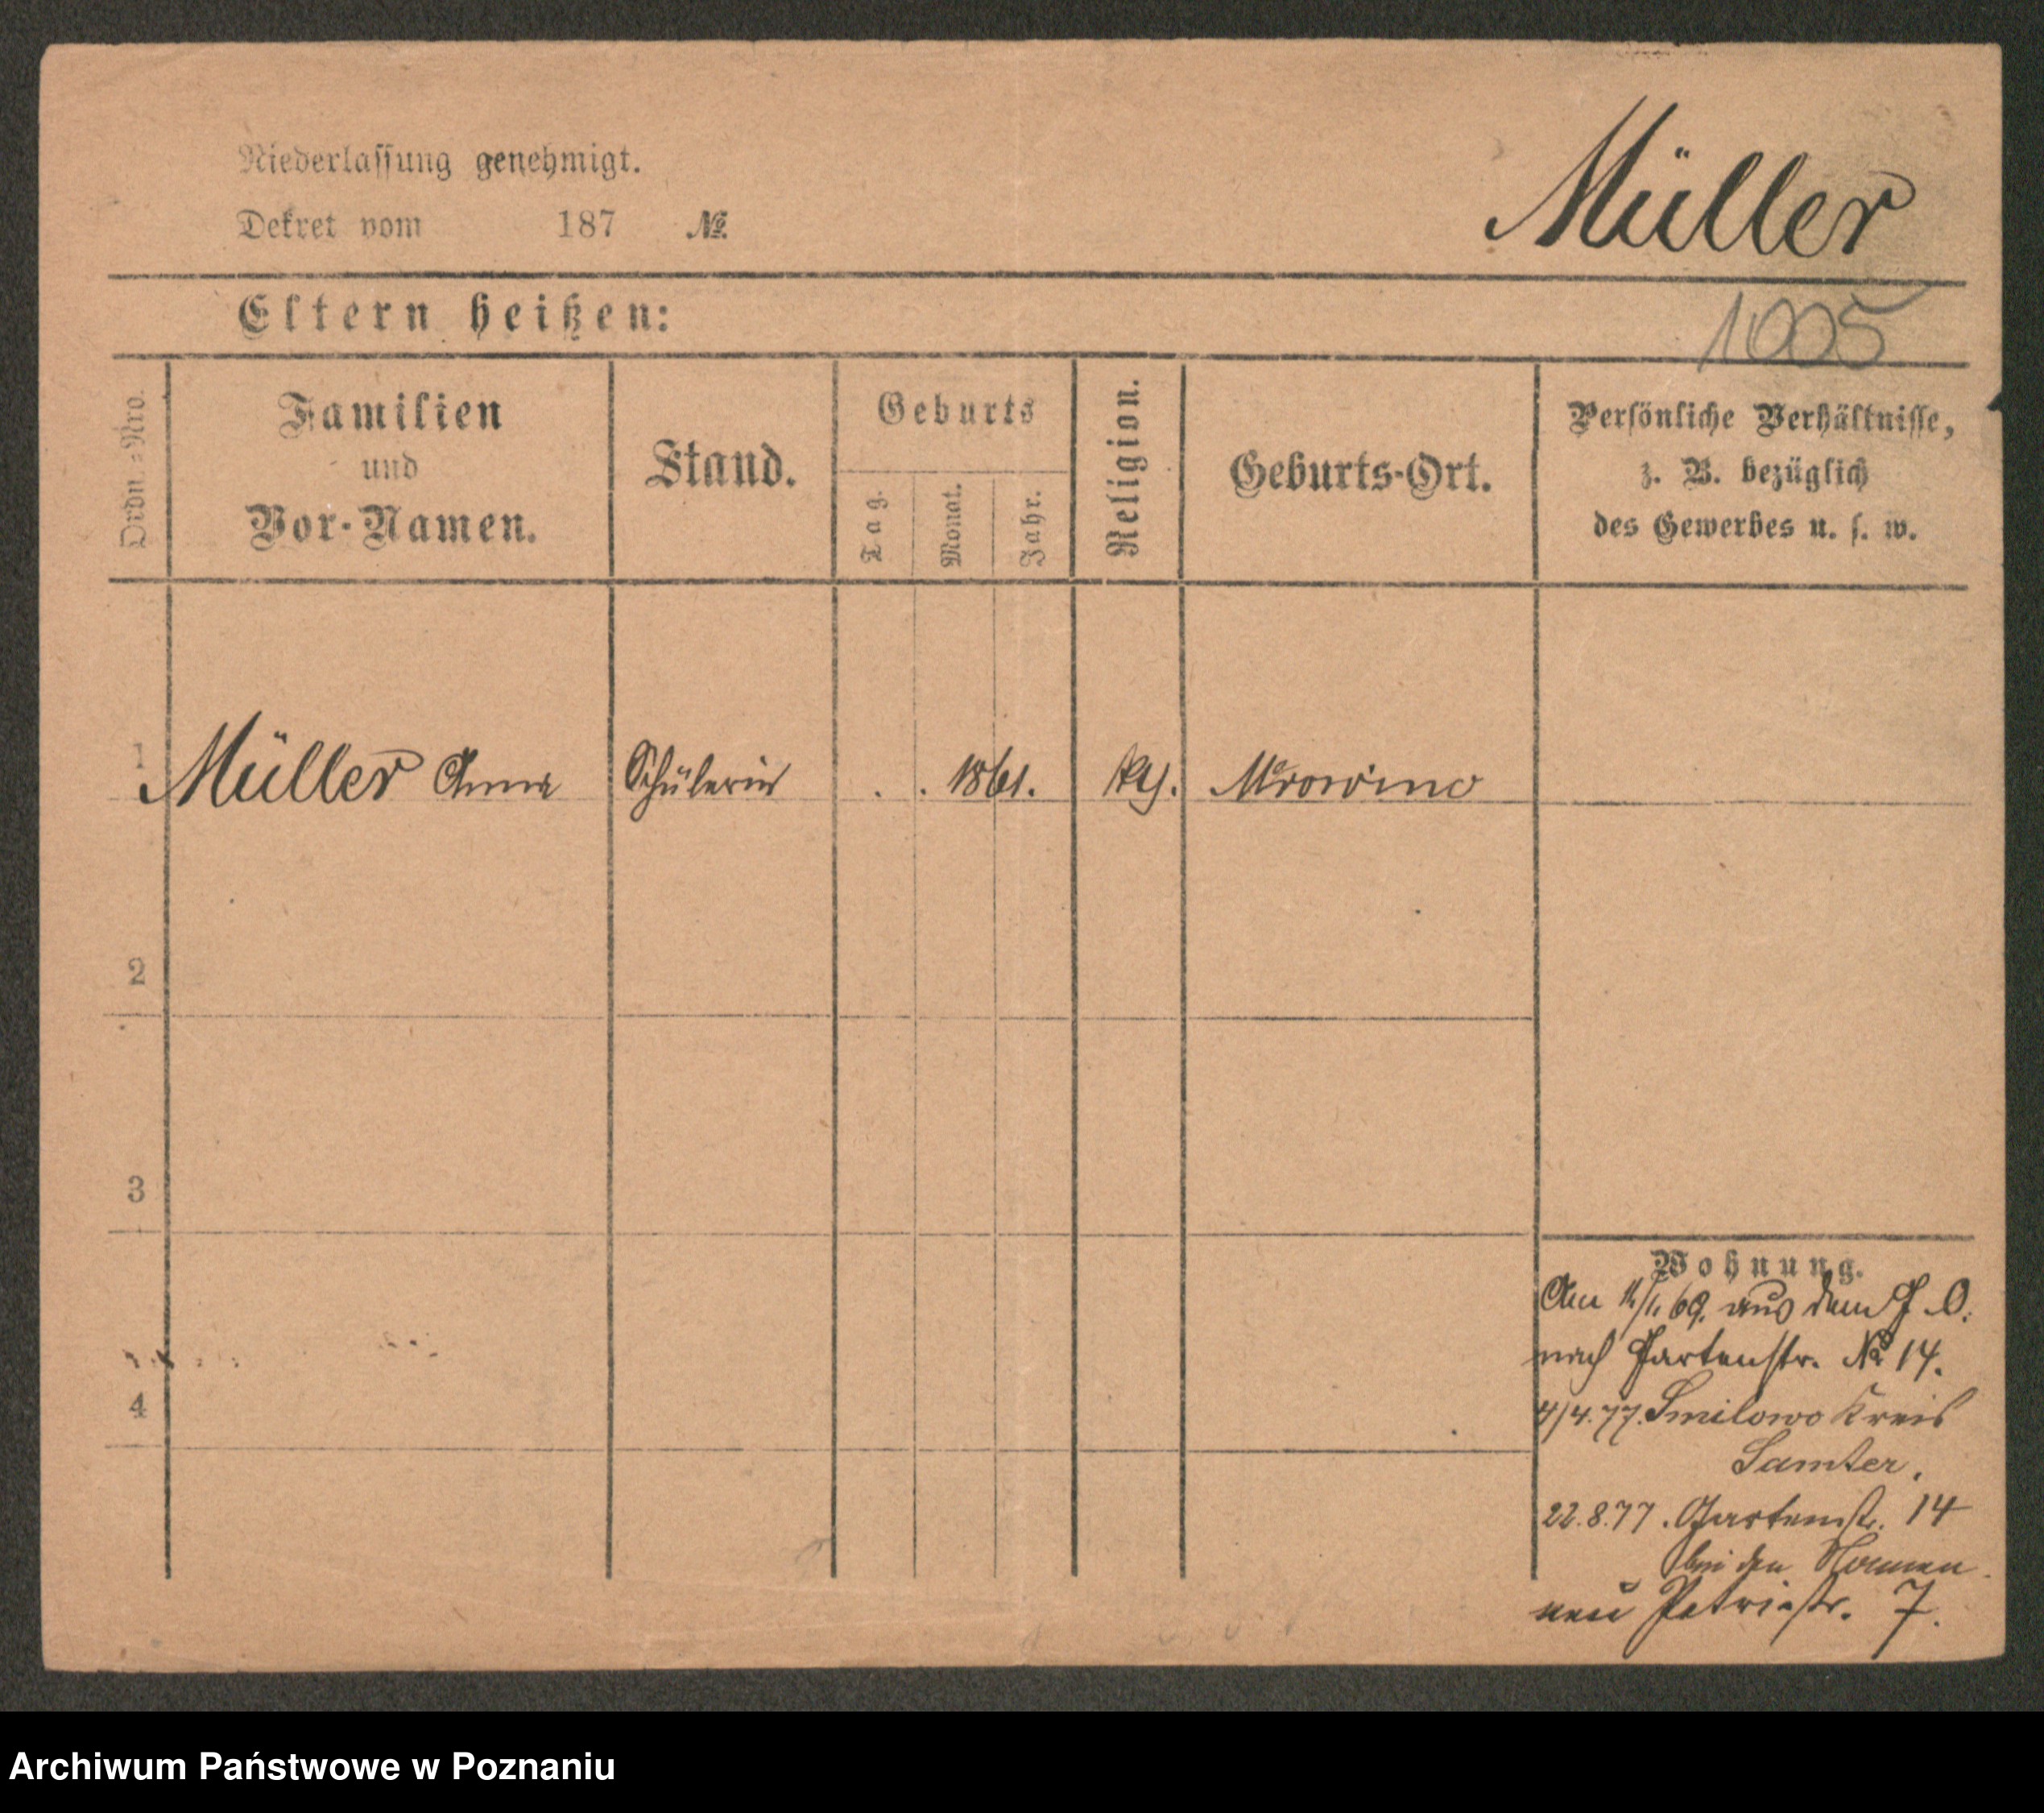 Müller
Niederlassung genehmigt.
Dekret vom 187 №
Eltern heißen:
1005
Ordn.-Nro.
Familien
und
Vor-Namen.
Stand.
Geburts
Tag.
Monat.
Jahr.
Religion.
Geburts-Ort.
Persönliche Verhältnisse,
z. B. bezüglich
des Gewerbes u. s. w.
1 Müller Anna Schülerin . . 1861. kth. Mrowino
2
3
4
Wohnung.
Am 69. aus dem J. O.
nach Gartenstr. № 14.
4/4.77. Smilowo Kreis
Samter.
22.8.77. Gartenstr. 14
bei den Nonnen.
neu Petristr. 7.
Archiwum Państwowe w Poznaniu